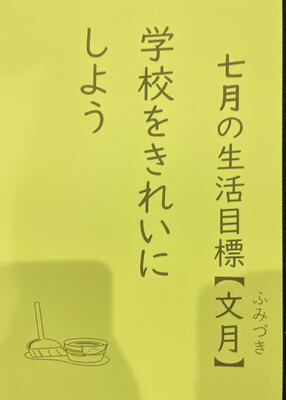 七月の生活目標【文月】
ふみづき
学校をきれいに
しよう